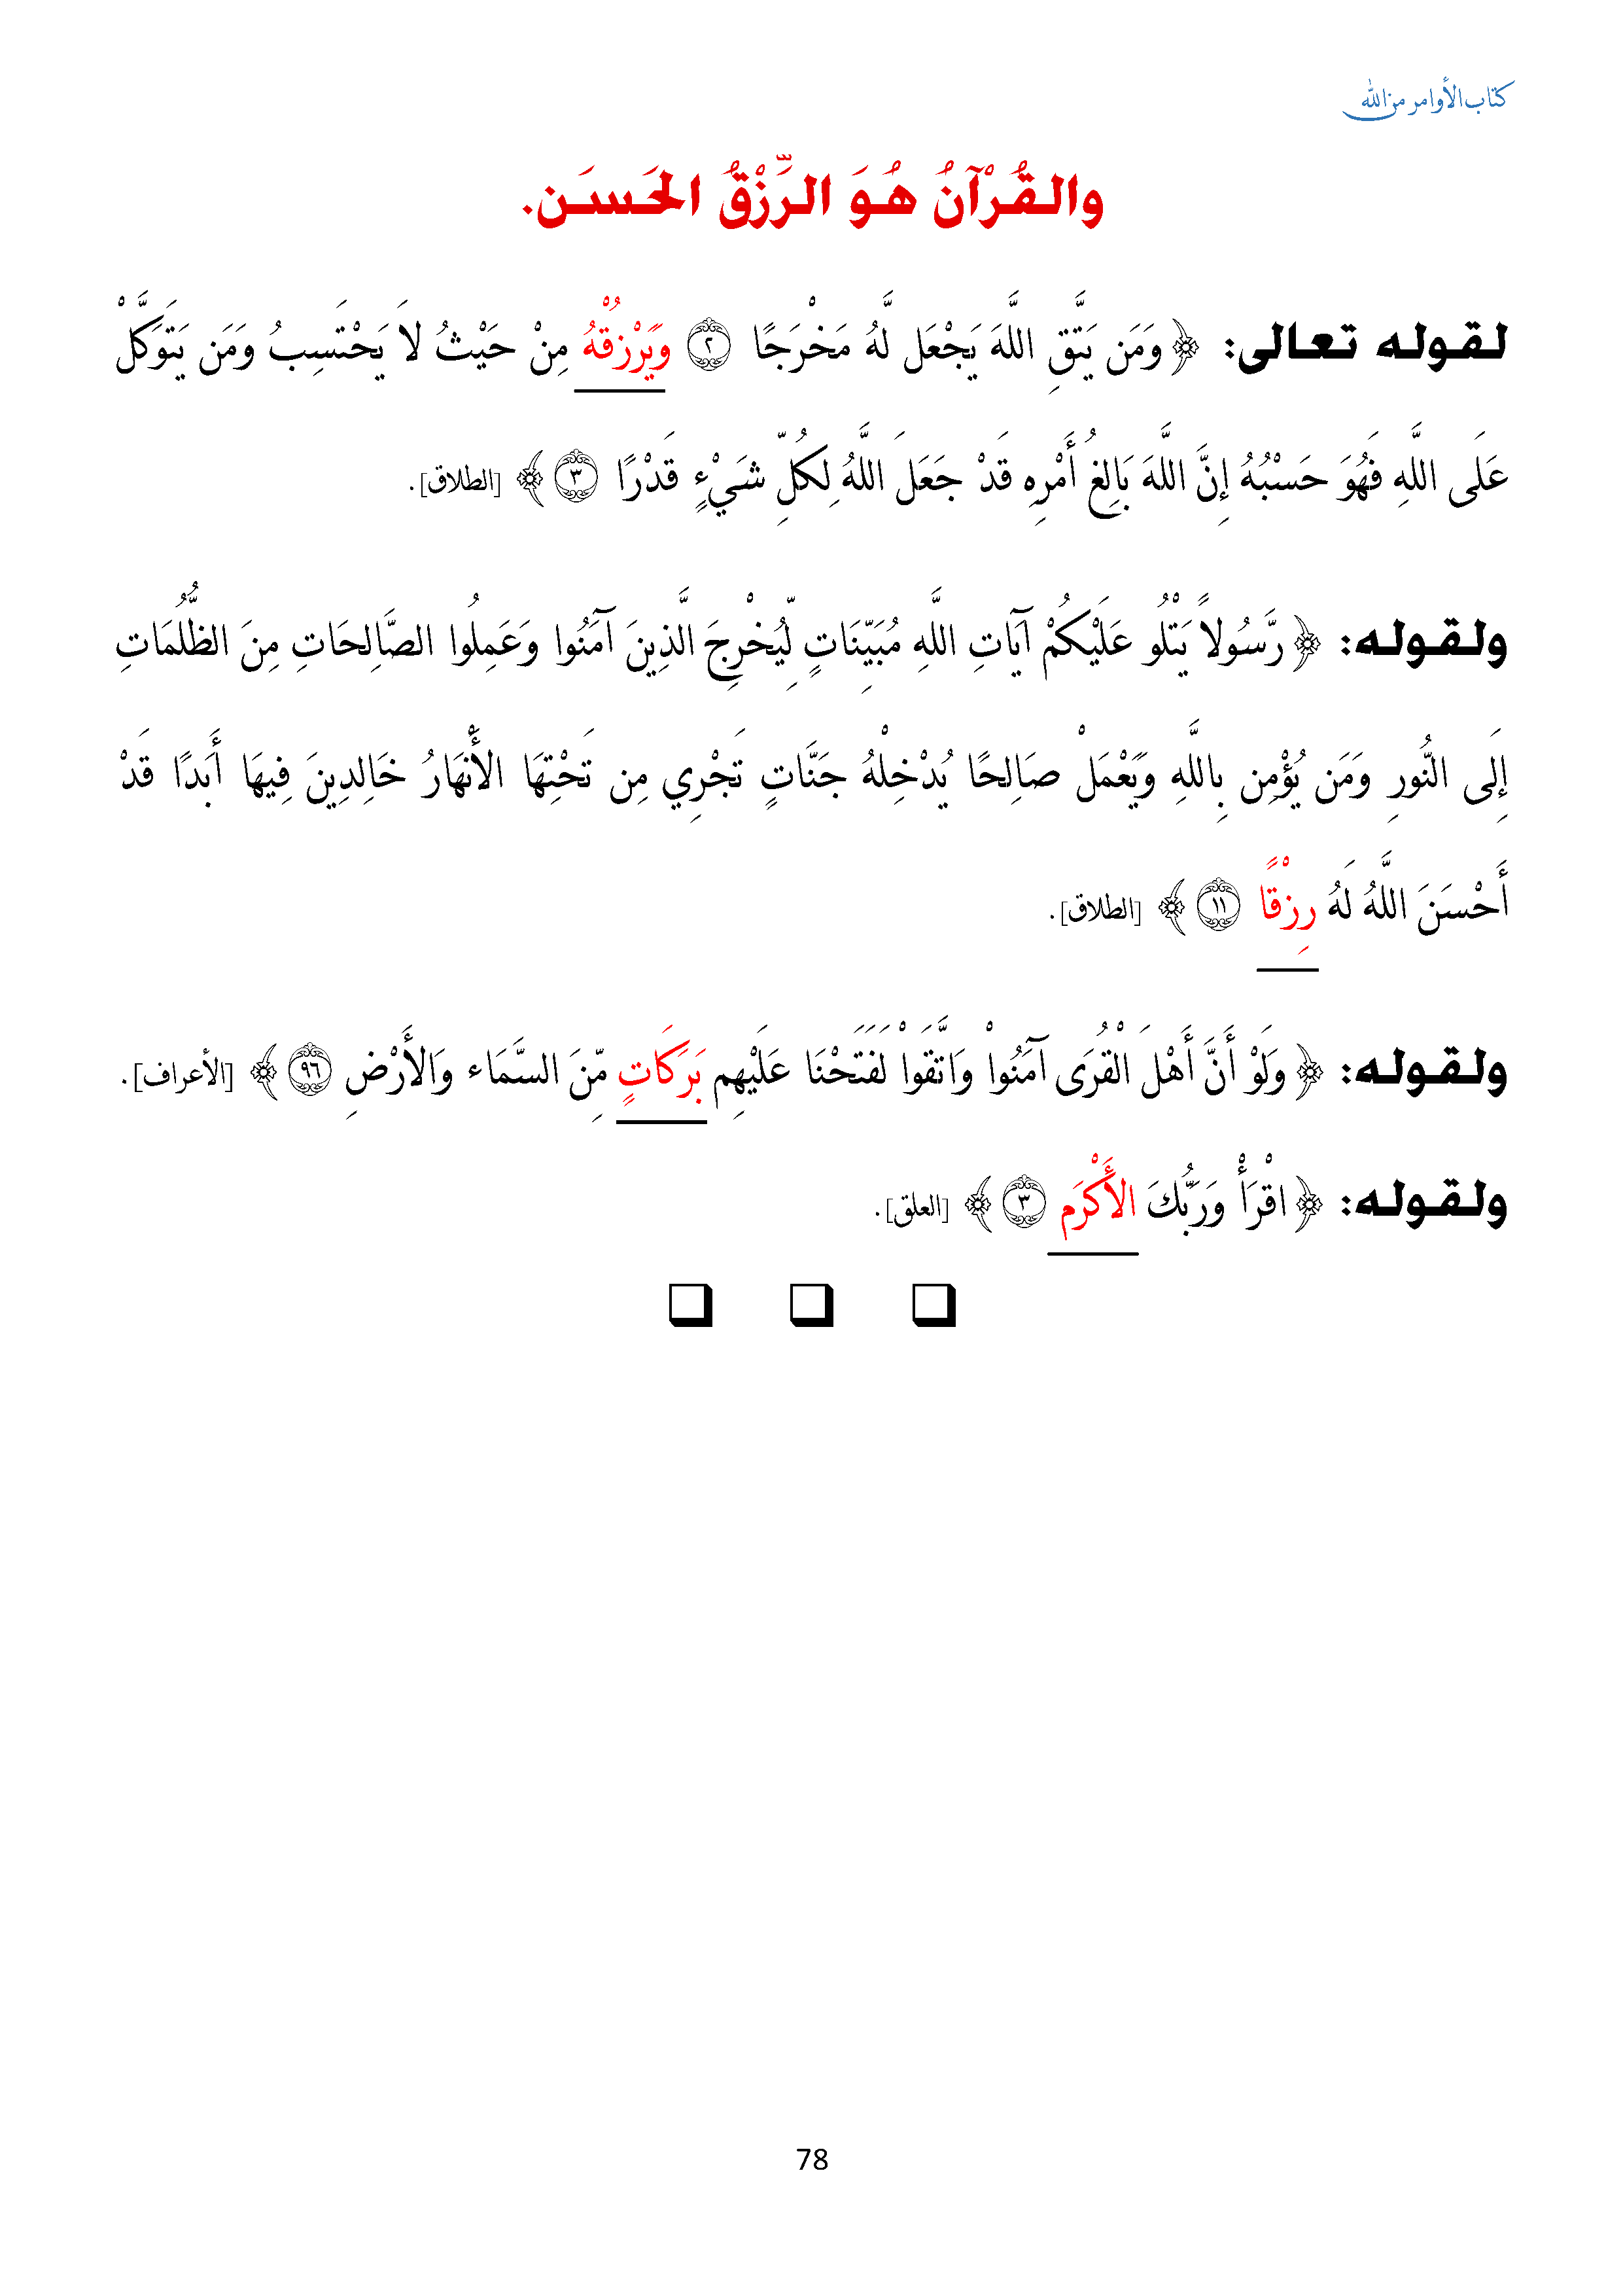 كتاب الأوامر من الله
والـقُـرْآنُ هُـوَ الـرِّزْقُ الحَـسـَـن.
لـقـولـه تـعـالى: ﴿وَمَن يَتَّقِ اللَّهَ يَجْعَل لَّهُ مَخْرَجًا ۝٢ وَيَرْزُقْهُ مِنْ حَيْثُ لاَ يَحْتَسِبُ وَمَن يَتَوَكَّلْ
عَلَى اللَّهِ فَهُوَ حَسْبُهُ إِنَّ اللَّهَ بَالِغُ أَمْرِهِ قَدْ جَعَلَ اللَّهُ لِكُلِّ شَيْءٍ قَدْرًا ۝٣ ﴾ [الطلاق].
ولـقـولـه: ﴿رَّسُولاً يَتْلُو عَلَيْكُمْ آيَاتِ اللَّهِ مُبَيِّنَاتٍ لِّيُخْرِجَ الَّذِينَ آمَنُوا وَعَمِلُوا الصَّالِحَاتِ مِنَ الظُّلُمَاتِ
إِلَى النُّورِ وَمَن يُؤْمِن بِاللَّهِ وَيَعْمَلْ صَالِحًا يُدْخِلْهُ جَنَّاتٍ تَجْرِي مِن تَحْتِهَا الأَنْهَارُ خَالِدِينَ فِيهَا أَبَدًا قَدْ
أَحْسَنَ اللَّهُ لَهُ رِزْقًا ۝١١ ﴾ [الطلاق].
ولـقـولـه: ﴿وَلَوْ أَنَّ أَهْلَ الْقُرَى آمَنُواْ وَاتَّقَواْ لَفَتَحْنَا عَلَيْهِم بَرَكَاتٍ مِّنَ السَّمَاء وَالأَرْضِ ۝٩٦ ﴾ [الأعراف].
ولـقـولـه: ﴿اقْرَأْ وَرَبُّكَ الأَكْرَم ۝٣ ﴾ [العلق].
❑ ❑ ❑
78